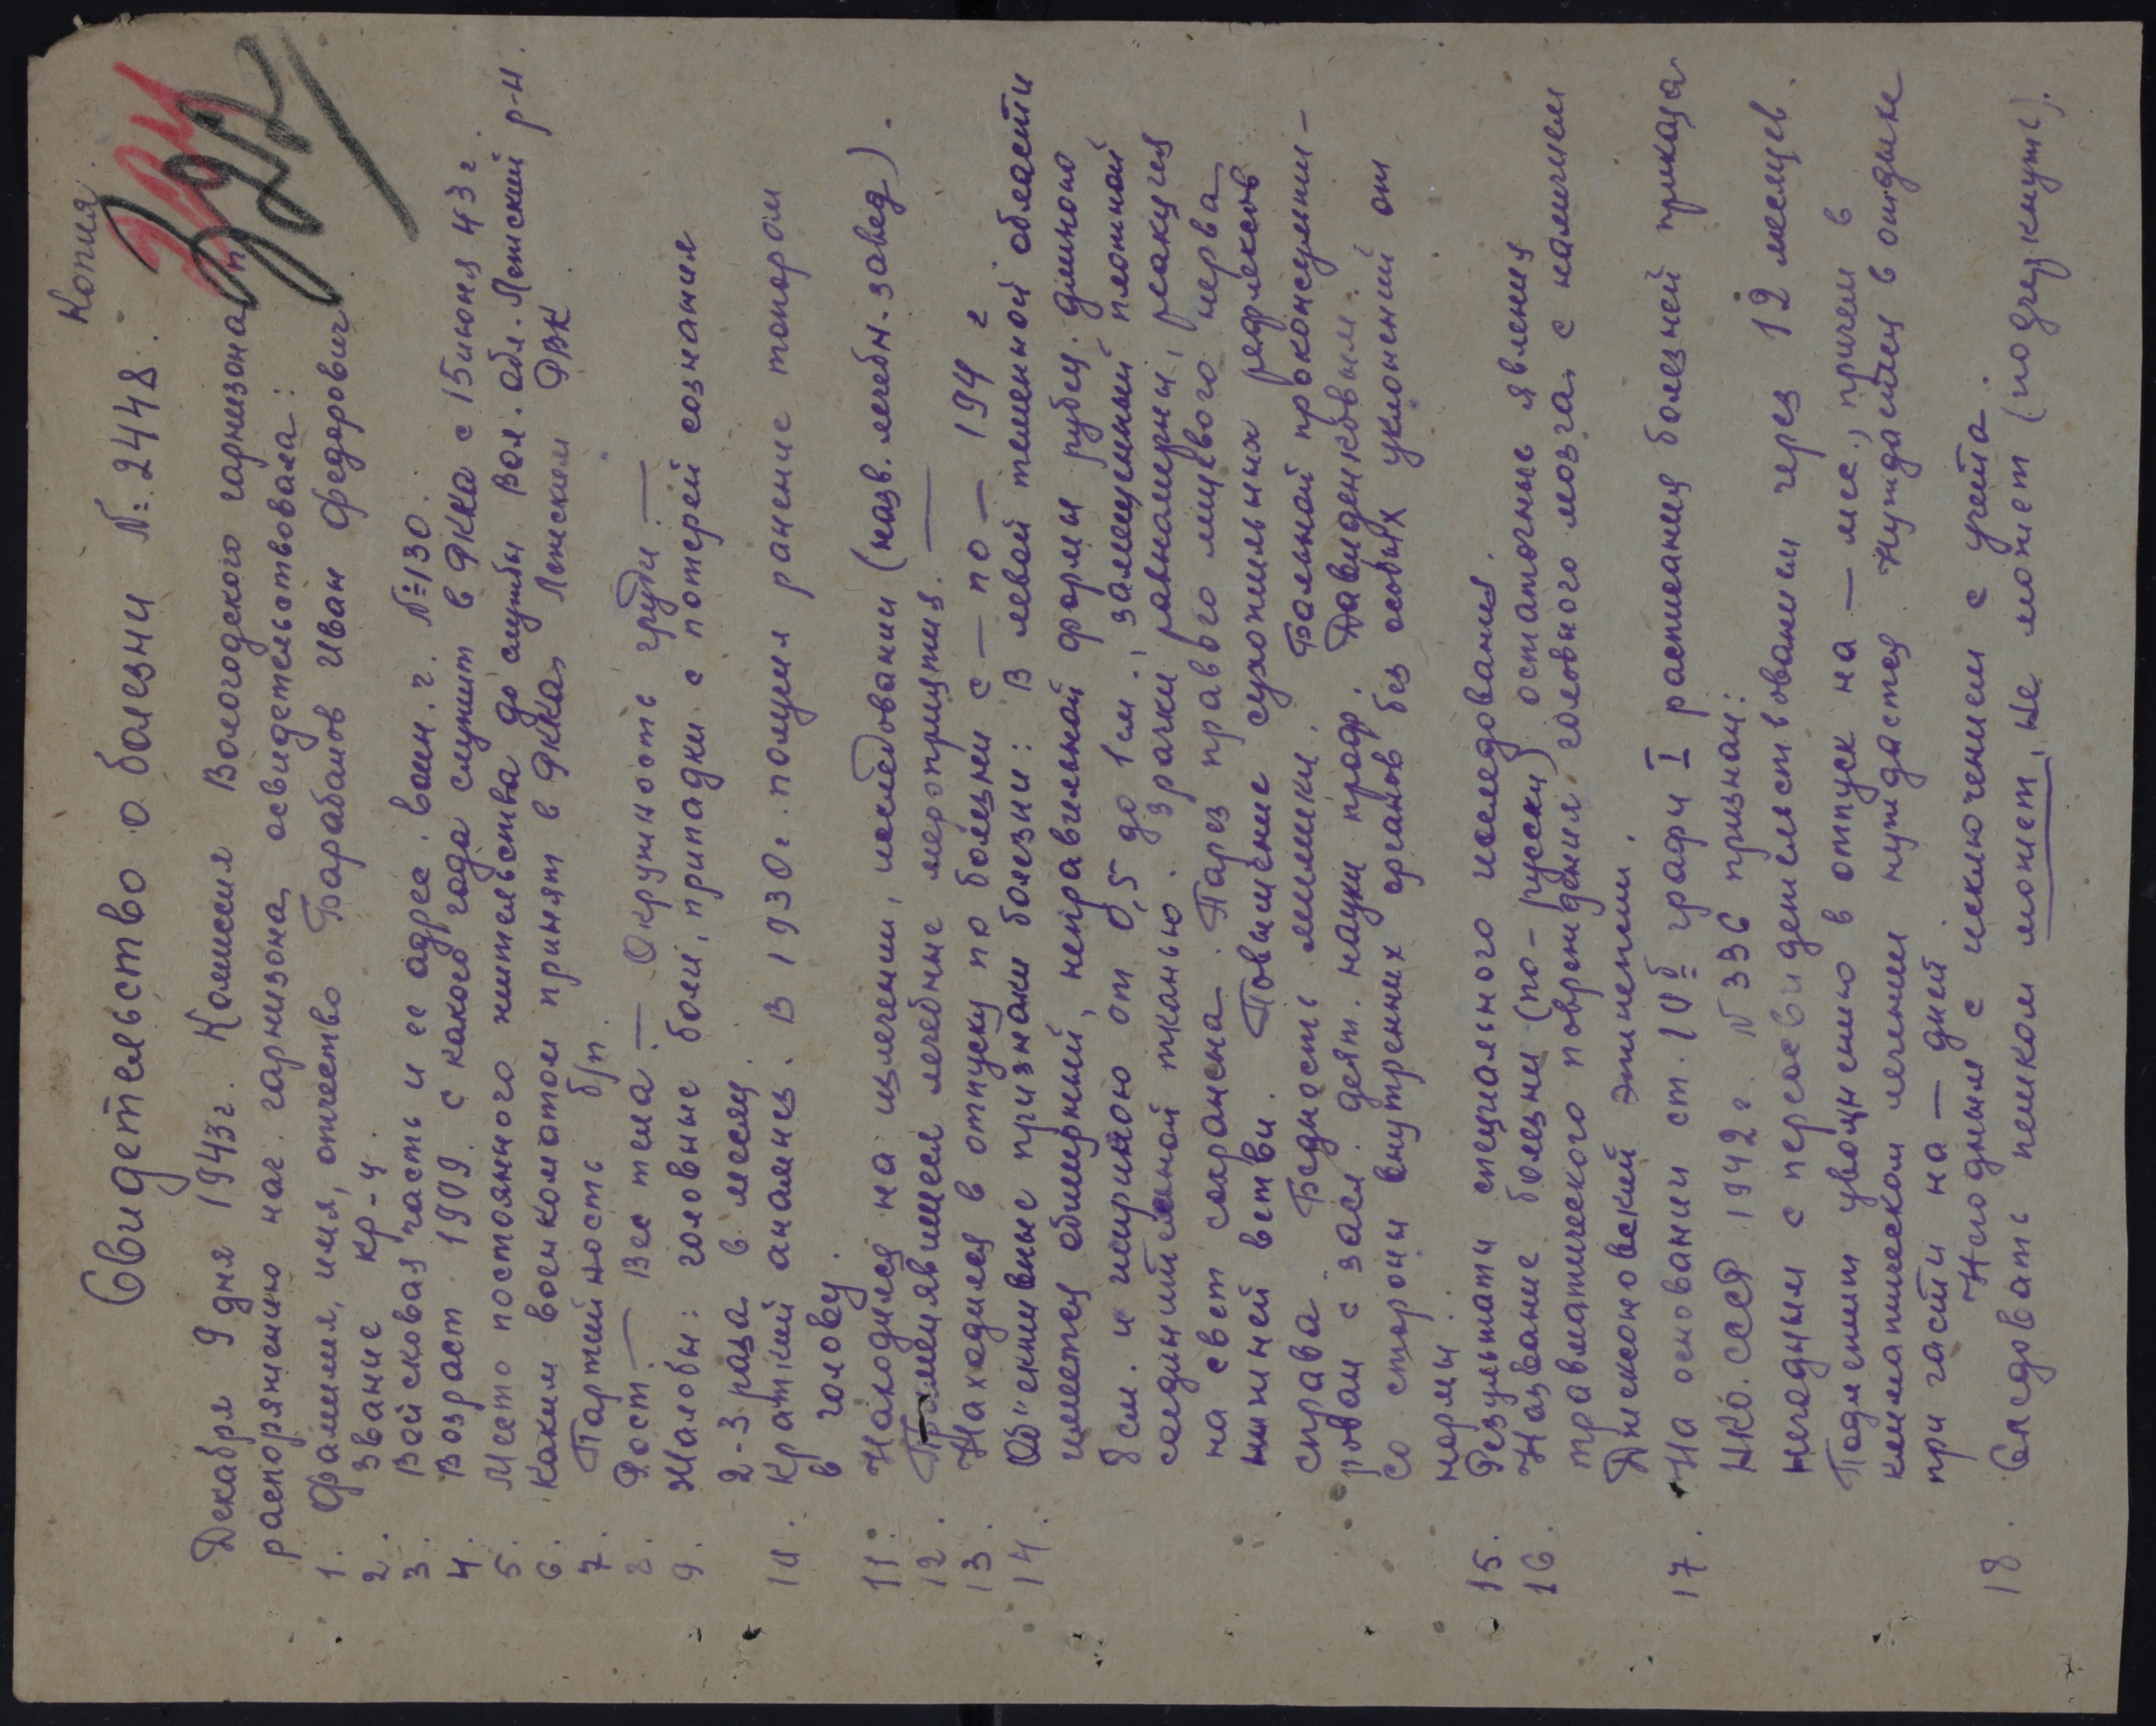 Копия
322
Свидетельство о болезни №: 2448.
Декабря 9 дня 1943г. Комиссия Вологодского гарнизона п
распоряжению нач. гарнизона освидетельствовала:
1. Фамилия, имя, отчество Барабанов Иван Федорович
2. Звание кр-ц.
3. Войсковая часть и ее адрес. воин. ч. №=130.
4. Возраст. 1909. с какого года служит в РККА с 15 июня 43 г.
5. Место постоянного жительства до службы Вол. обл. Лежский р-н.
6. Каким военкоматом принят в РККА Лежским РВК.
7. Партийность б/п.
8. Рост. — Вес тела. — Окружность груди. —
9. Жалобы: головные боли, припадки с потерей сознания
2-3 раза в месяц.
10. Краткий анамнез. В 1930г. получил ранение топором
в голову.
11. Находился на излечении, исследовании (назв. лечебн. завед).
12. Применявшиеся лечебные мероприятия. —
13. Находился в отпуску по болезни с — по — 194 г
14. Об"ективные признаки болезни: В левой теменной области
имеется обширный, неправильной формы рубец. длиною
8 см. и шириною от 0,5 до 1см., замещенный плотной
соединительной тканью. Зрачки равномерны, реакция
на свет сохранена. Парез правого лицевого нерва
нижней ветви. Повышение сухожильных рефлексов
справа. Бедность мимики. Больной проконсульти-
рован с засл. деят. науки проф. Давиденковым.
Со стороны внутренних органов без особых уклонений от
нормы.
15. Результаты специального исследования.
16. Название болезни (по-русски) остаточные явления
травматического повреждения головного мозга с наличием
Джексоновский эпилепсии.
17. На основании ст. 10б графы I расписания болезней приказа
НКО. СССР 1942г. N 336 признан:
негодным с переосвидетельствованием через 12 месяцев.
Подлежит увольнению в отпуск на — мес., причем в
климатическом лечении нуждается. Нуждается в отдыхе
при части на — дней.
Негодным с исключением с учета.
18. Следовать пешком может, не может (подчеркнуть).